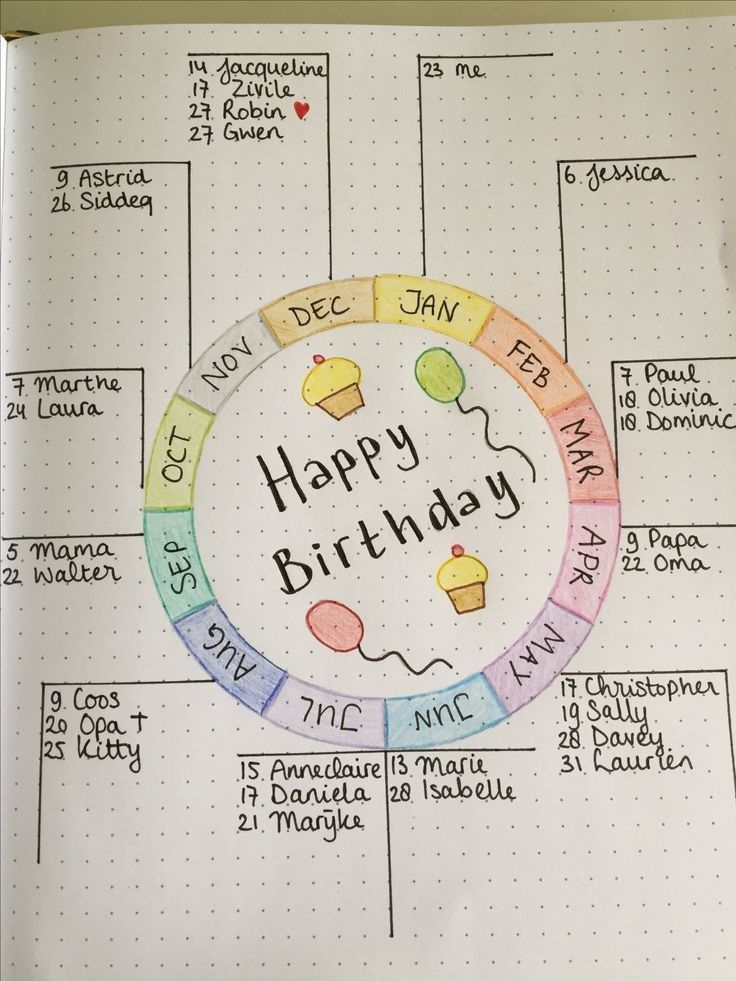 14. Jacqueline
17. Zivile
27. Robin ♥
27. Gwen
23 me
9. Astrid
26. Siddeq
6. Jessica
DEC
JAN
NOV
FEB
7. Marthe
24. Laura
7. Paul
18. Olivia
18. Dominic
OCT
MAR
Happy
Birthday
5. Mama
22 Walter
SEP
APR
9. Papa
22. Oma
AUG
MAY
JUL
JUN
9. Coos
20. Opa †
25. Kitty
17. Christopher
19. Sally
28. Davey
31. Laurien
15. Anneclaire
17. Daniela
21. Marÿke
13. Marie
28. Isabelle